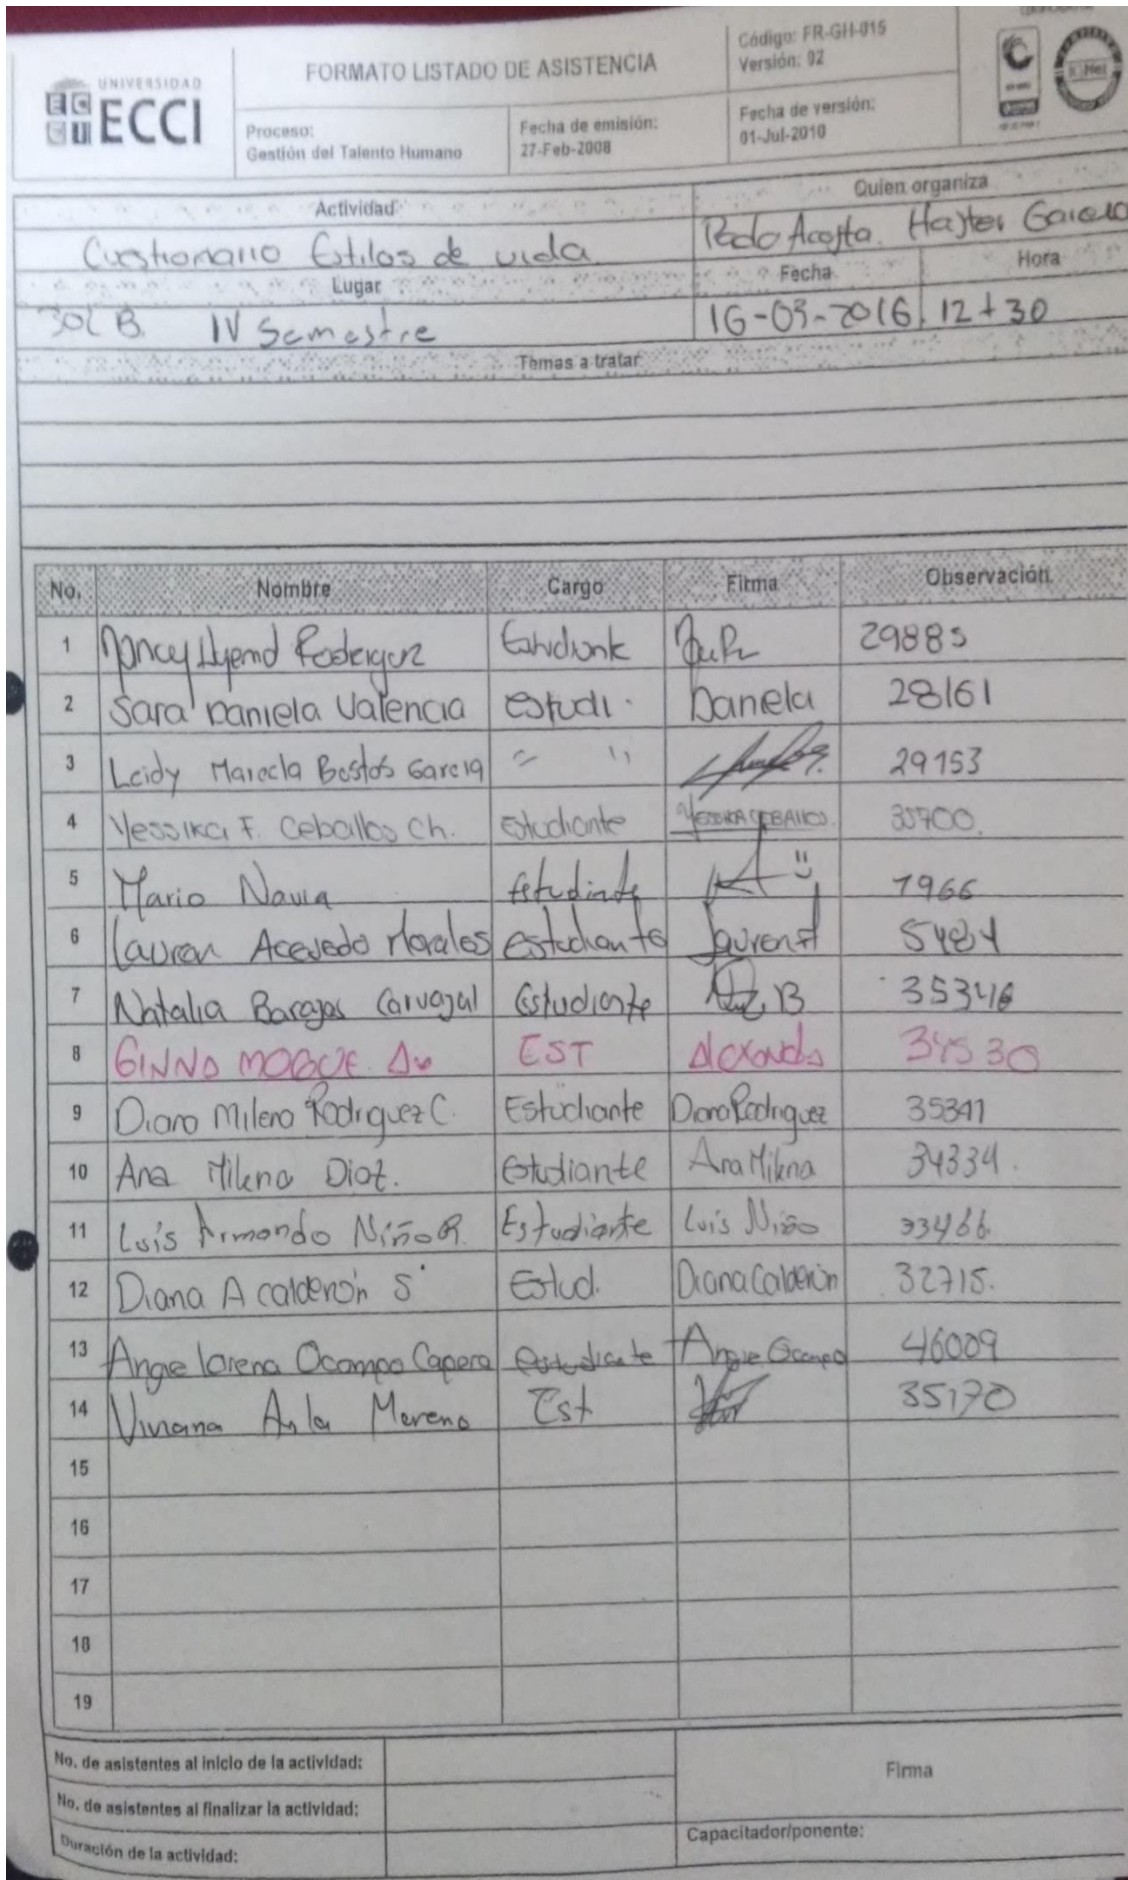 UNIVERSIDAD
ECCI
FORMATO LISTADO DE ASISTENCIA
Código: FR-GH-015
Versión: 02
Proceso:
Gestión del Talento Humano
Fecha de emisión:
27-Feb-2008
Fecha de versión:
01-Jul-2010
Actividad
Quien organiza
Custionario Estilos de vida
Acosta. Hayter
Lugar
Fecha
Hora
IV Semestre
16-03-2016
12+30
Temas a tratar
No. Nombre Cargo Firma Observación
1 Nancy 29885
2 Sara Daniela Valencia estudi. Daniela 28161
3 Leidy Marcela Bostos Garcia " 29153
4 Yessika F. Ceballos Ch. estudiante YESSIKA CEBALLOS. 35700.
5 Mario Navia estudiante 1966
6 Lauren Acevedo Morales estudiante 5484
7 Natalia Barajas Carvajal Estudiante B 35346
8 EST 34530
9 Diana Milena Rodriguez C. Estudiante Diana Rodriguez 35341
10 Ana Milena Diaz. Estudiante Ana Milena 34334.
11 Luis Armando Niño R. Estudiante Luis Niño 33466.
12 Diana A calderón S Estud. Diana Calderón 32715.
13 Angie lorena Ocampo Capera estudiante Angie Ocampo 46009
14 Viviana Moreno Est 35170
15
16
17
18
19
No. de asistentes al inicio de la actividad:
Firma
No. de asistentes al finalizar la actividad:
Duración de la actividad:
Capacitador/ponente: